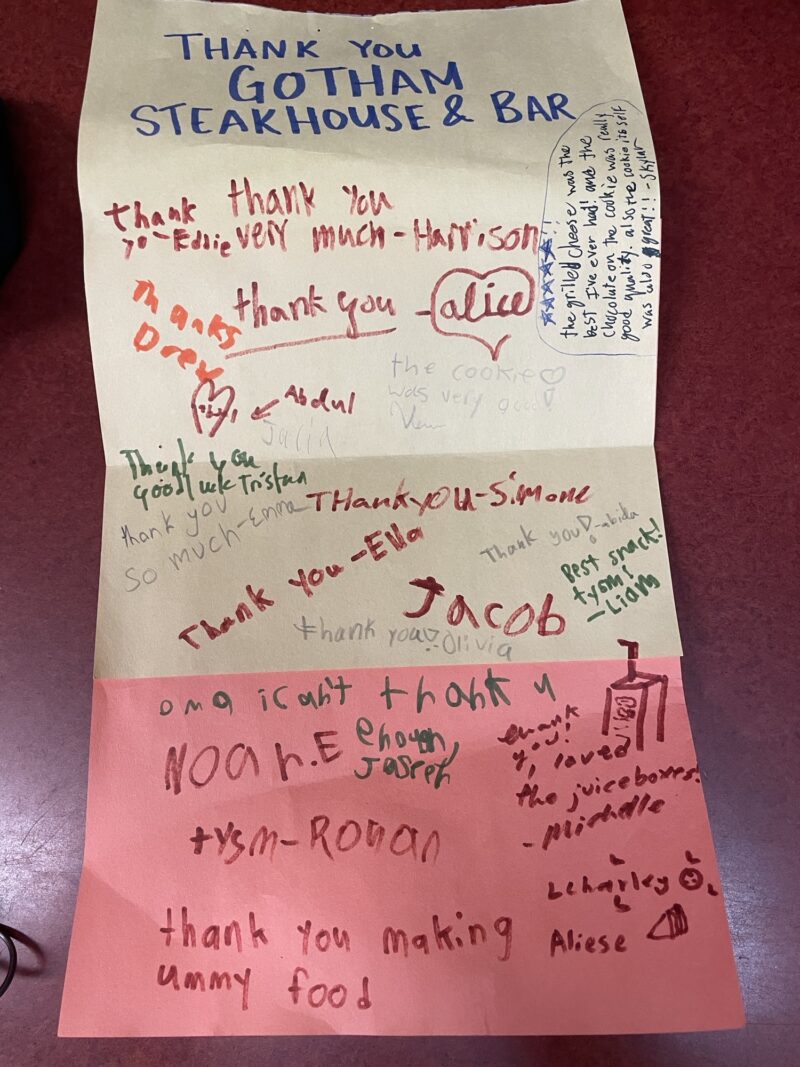 THANK YOU
GOTHAM
STEAKHOUSE & BAR
the grilled cheese was the
best I've ever had! and the
chocolate on the cookie was really
good quality. also the cookie itself
was also great!! -Skylar
thank
yo-Eddie
thank you
very much-Harrison
Thanks
Drew
thank you -alice
the cookie
was very good!
Abdul
Jalid
Thank you
good luck Tristan
THankyou-Simone
thank you
so much-Emma
Thank you -Ella
Thank you! -abida
Best snack!
tysm!
-Liam
Jacob
thank you :Olivia
omg i can't thank u
enough,
Joseph
Noah.E
thank
you!
I loved
the juiceboxes!
-Michelle
tysm-Ronan
Lcharley
Aliese
thank you making
ummy food